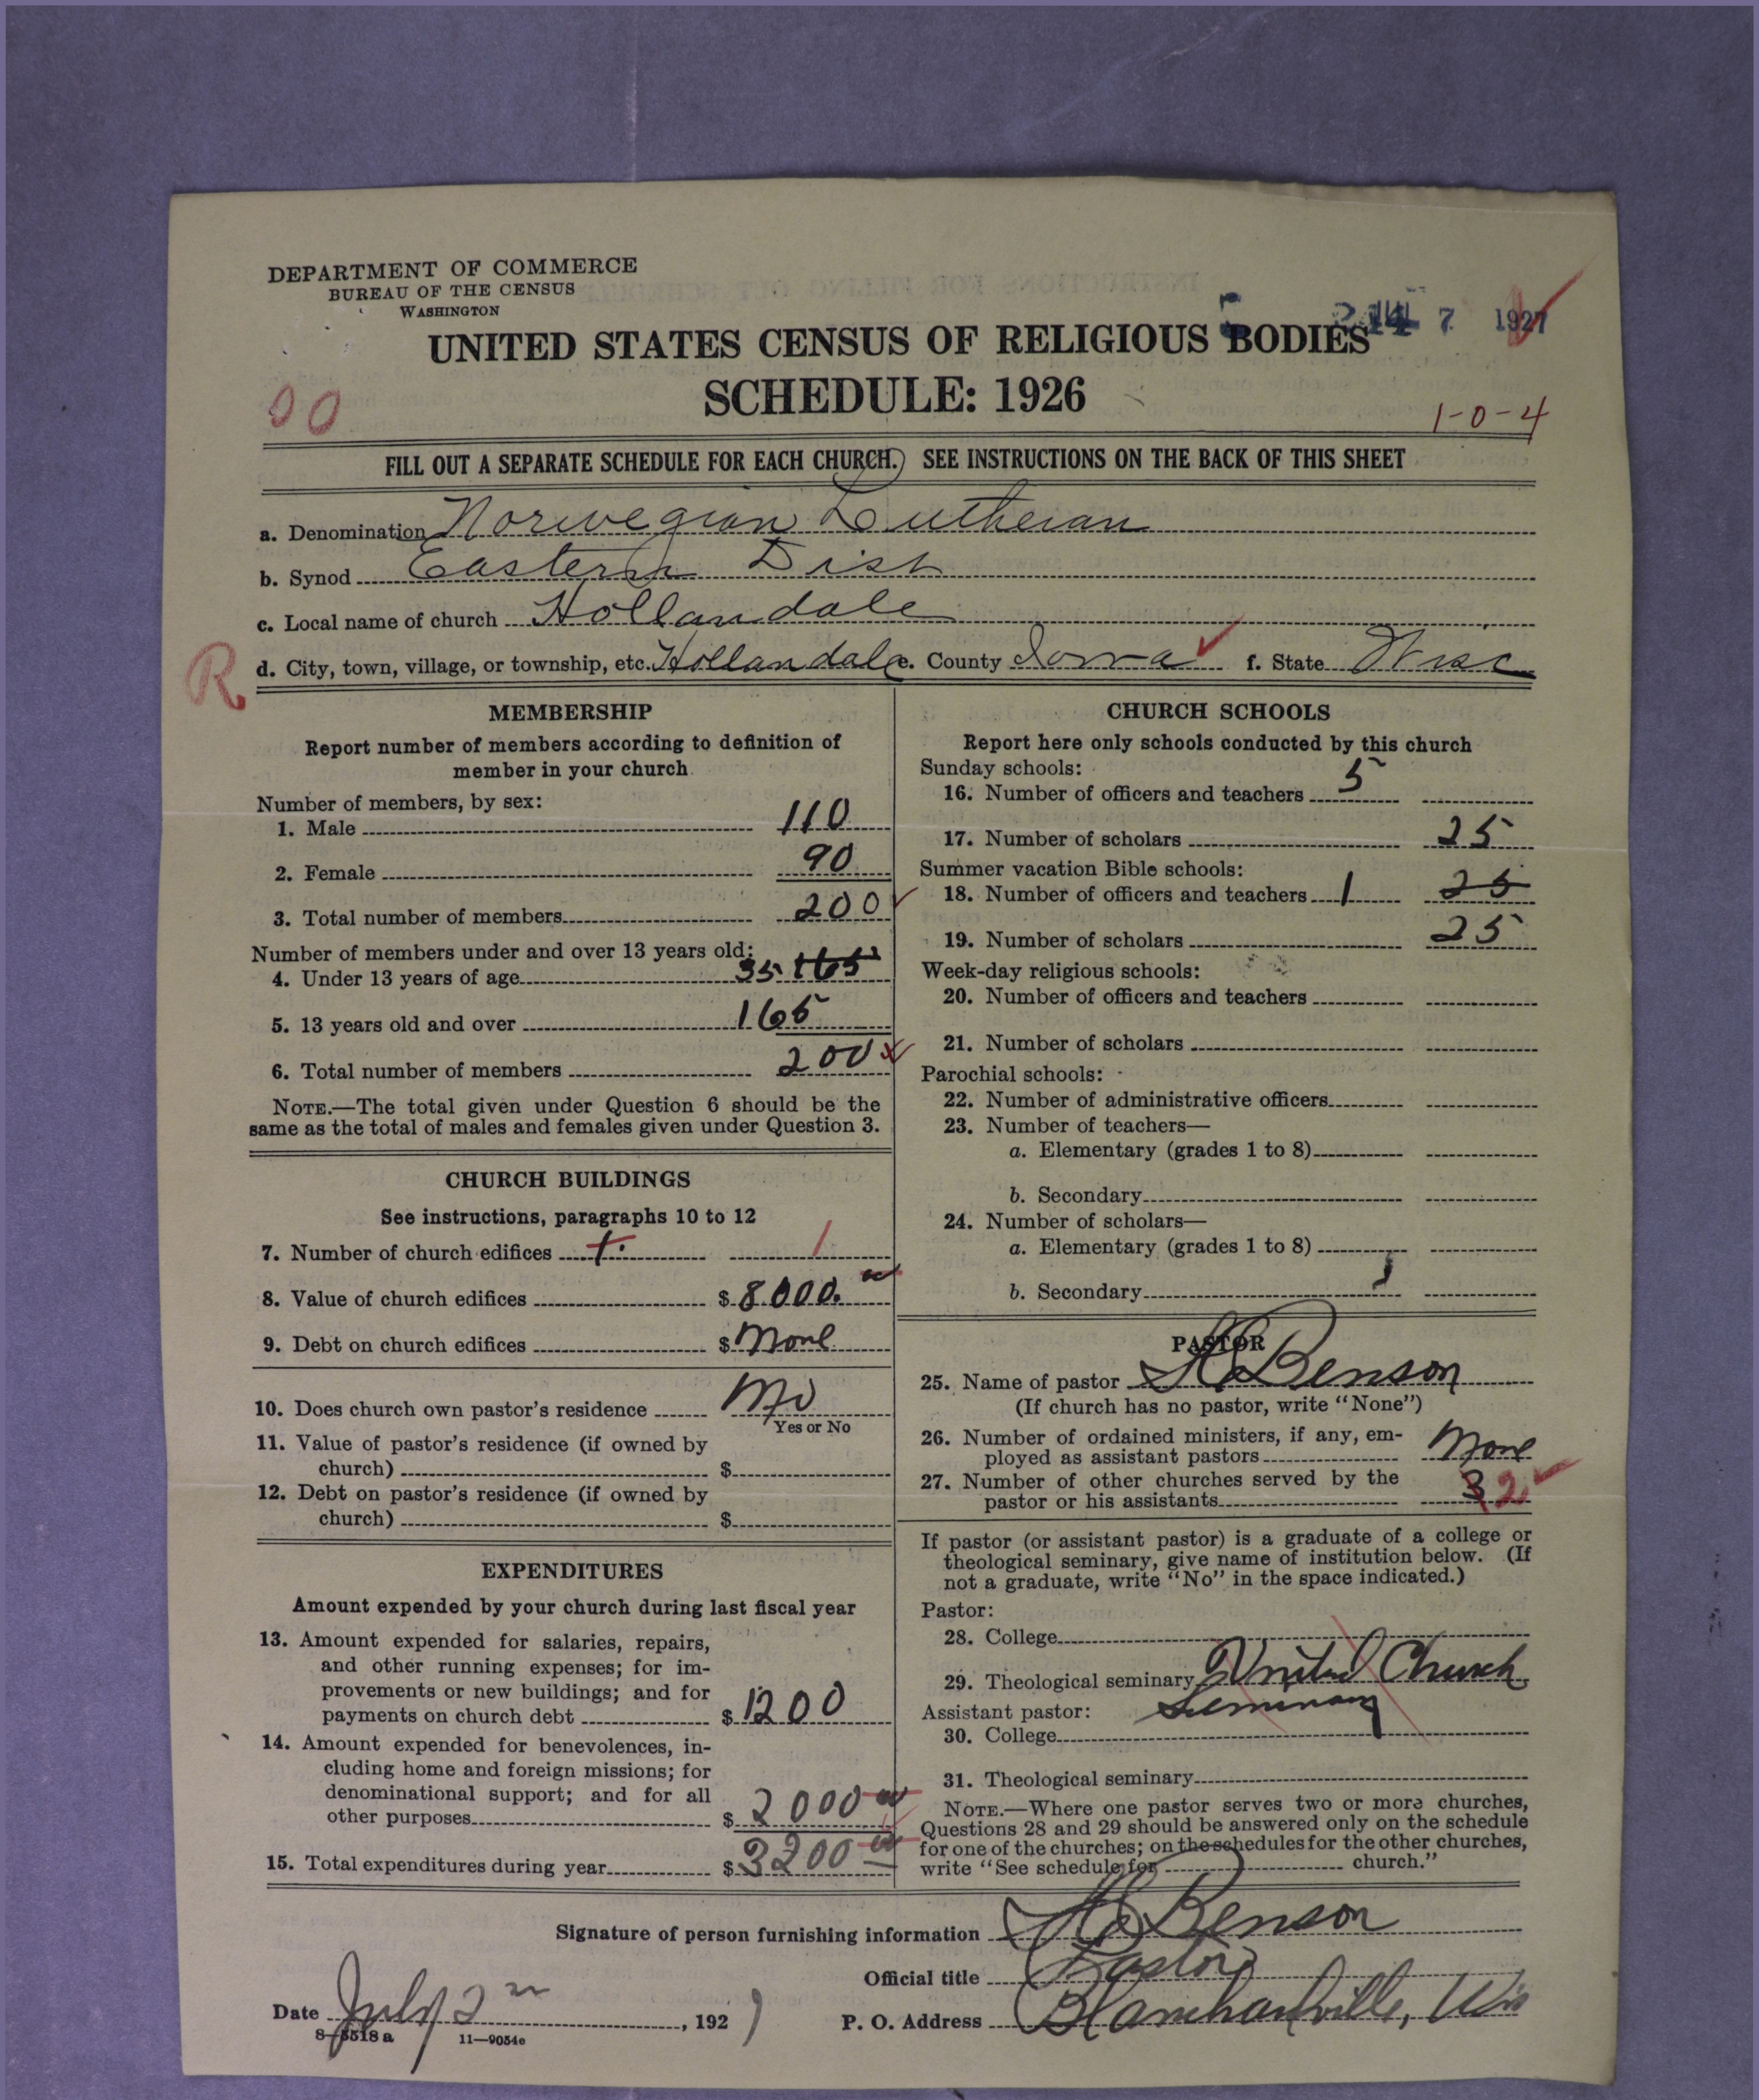 DEPARTMENT OF COMMERCE
BUREAU OF THE CENSUS
WASHINGTON
7 1927
UNITED STATES CENSUS OF RELIGIOUS BODIES
SCHEDULE: 1926
00
1-0-4
FILL OUT A SEPARATE SCHEDULE FOR EACH CHURCH. SEE INSTRUCTIONS ON THE BACK OF THIS SHEET
a. Denomination Norwegian Lutheran
b. Synod Eastern Dist
c. Local name of church Hollandale
R d. City, town, village, or township, etc. Hollandale e. County Iowa f. State Wisc
MEMBERSHIP
Report number of members according to definition of
member in your church
Number of members, by sex:
1. Male 110
2. Female 90
3. Total number of members 200
Number of members under and over 13 years old:
4. Under 13 years of age 35 165
5. 13 years old and over 165
6. Total number of members 200
NOTE.—The total given under Question 6 should be the
same as the total of males and females given under Question 3.
CHURCH BUILDINGS
See instructions, paragraphs 10 to 12
7. Number of church edifices 1. 1
8. Value of church edifices $ 8000.
9. Debt on church edifices $ None
10. Does church own pastor's residence No
Yes or No
11. Value of pastor's residence (if owned by
church) $
12. Debt on pastor's residence (if owned by
church) $
EXPENDITURES
Amount expended by your church during last fiscal year
13. Amount expended for salaries, repairs,
and other running expenses; for im-
provements or new buildings; and for
payments on church debt $ 1200
14. Amount expended for benevolences, in-
cluding home and foreign missions; for
denominational support; and for all
other purposes $ 2000
15. Total expenditures during year $ 3200
CHURCH SCHOOLS
Report here only schools conducted by this church
Sunday schools:
16. Number of officers and teachers 5
17. Number of scholars 25
Summer vacation Bible schools:
18. Number of officers and teachers 1 25
19. Number of scholars 25
Week-day religious schools:
20. Number of officers and teachers
21. Number of scholars
Parochial schools:
22. Number of administrative officers
23. Number of teachers—
a. Elementary (grades 1 to 8)
b. Secondary
24. Number of scholars—
a. Elementary (grades 1 to 8)
b. Secondary
PASTOR
25. Name of pastor Benson
(If church has no pastor, write "None")
26. Number of ordained ministers, if any, em-
ployed as assistant pastors None
27. Number of other churches served by the
pastor or his assistants 3 2
If pastor (or assistant pastor) is a graduate of a college or
theological seminary, give name of institution below. (If
not a graduate, write "No" in the space indicated.)
Pastor:
28. College
29. Theological seminary United Church
Seminary
Assistant pastor:
30. College
31. Theological seminary
NOTE.—Where one pastor serves two or more churches,
Questions 28 and 29 should be answered only on the schedule
for one of the churches; on the schedules for the other churches,
write "See schedule for church."
Signature of person furnishing information Benson
Official title Pastor
Date July 2 , 1927
P. O. Address Blanchardville, Wis
8-5518 a 11—9054e